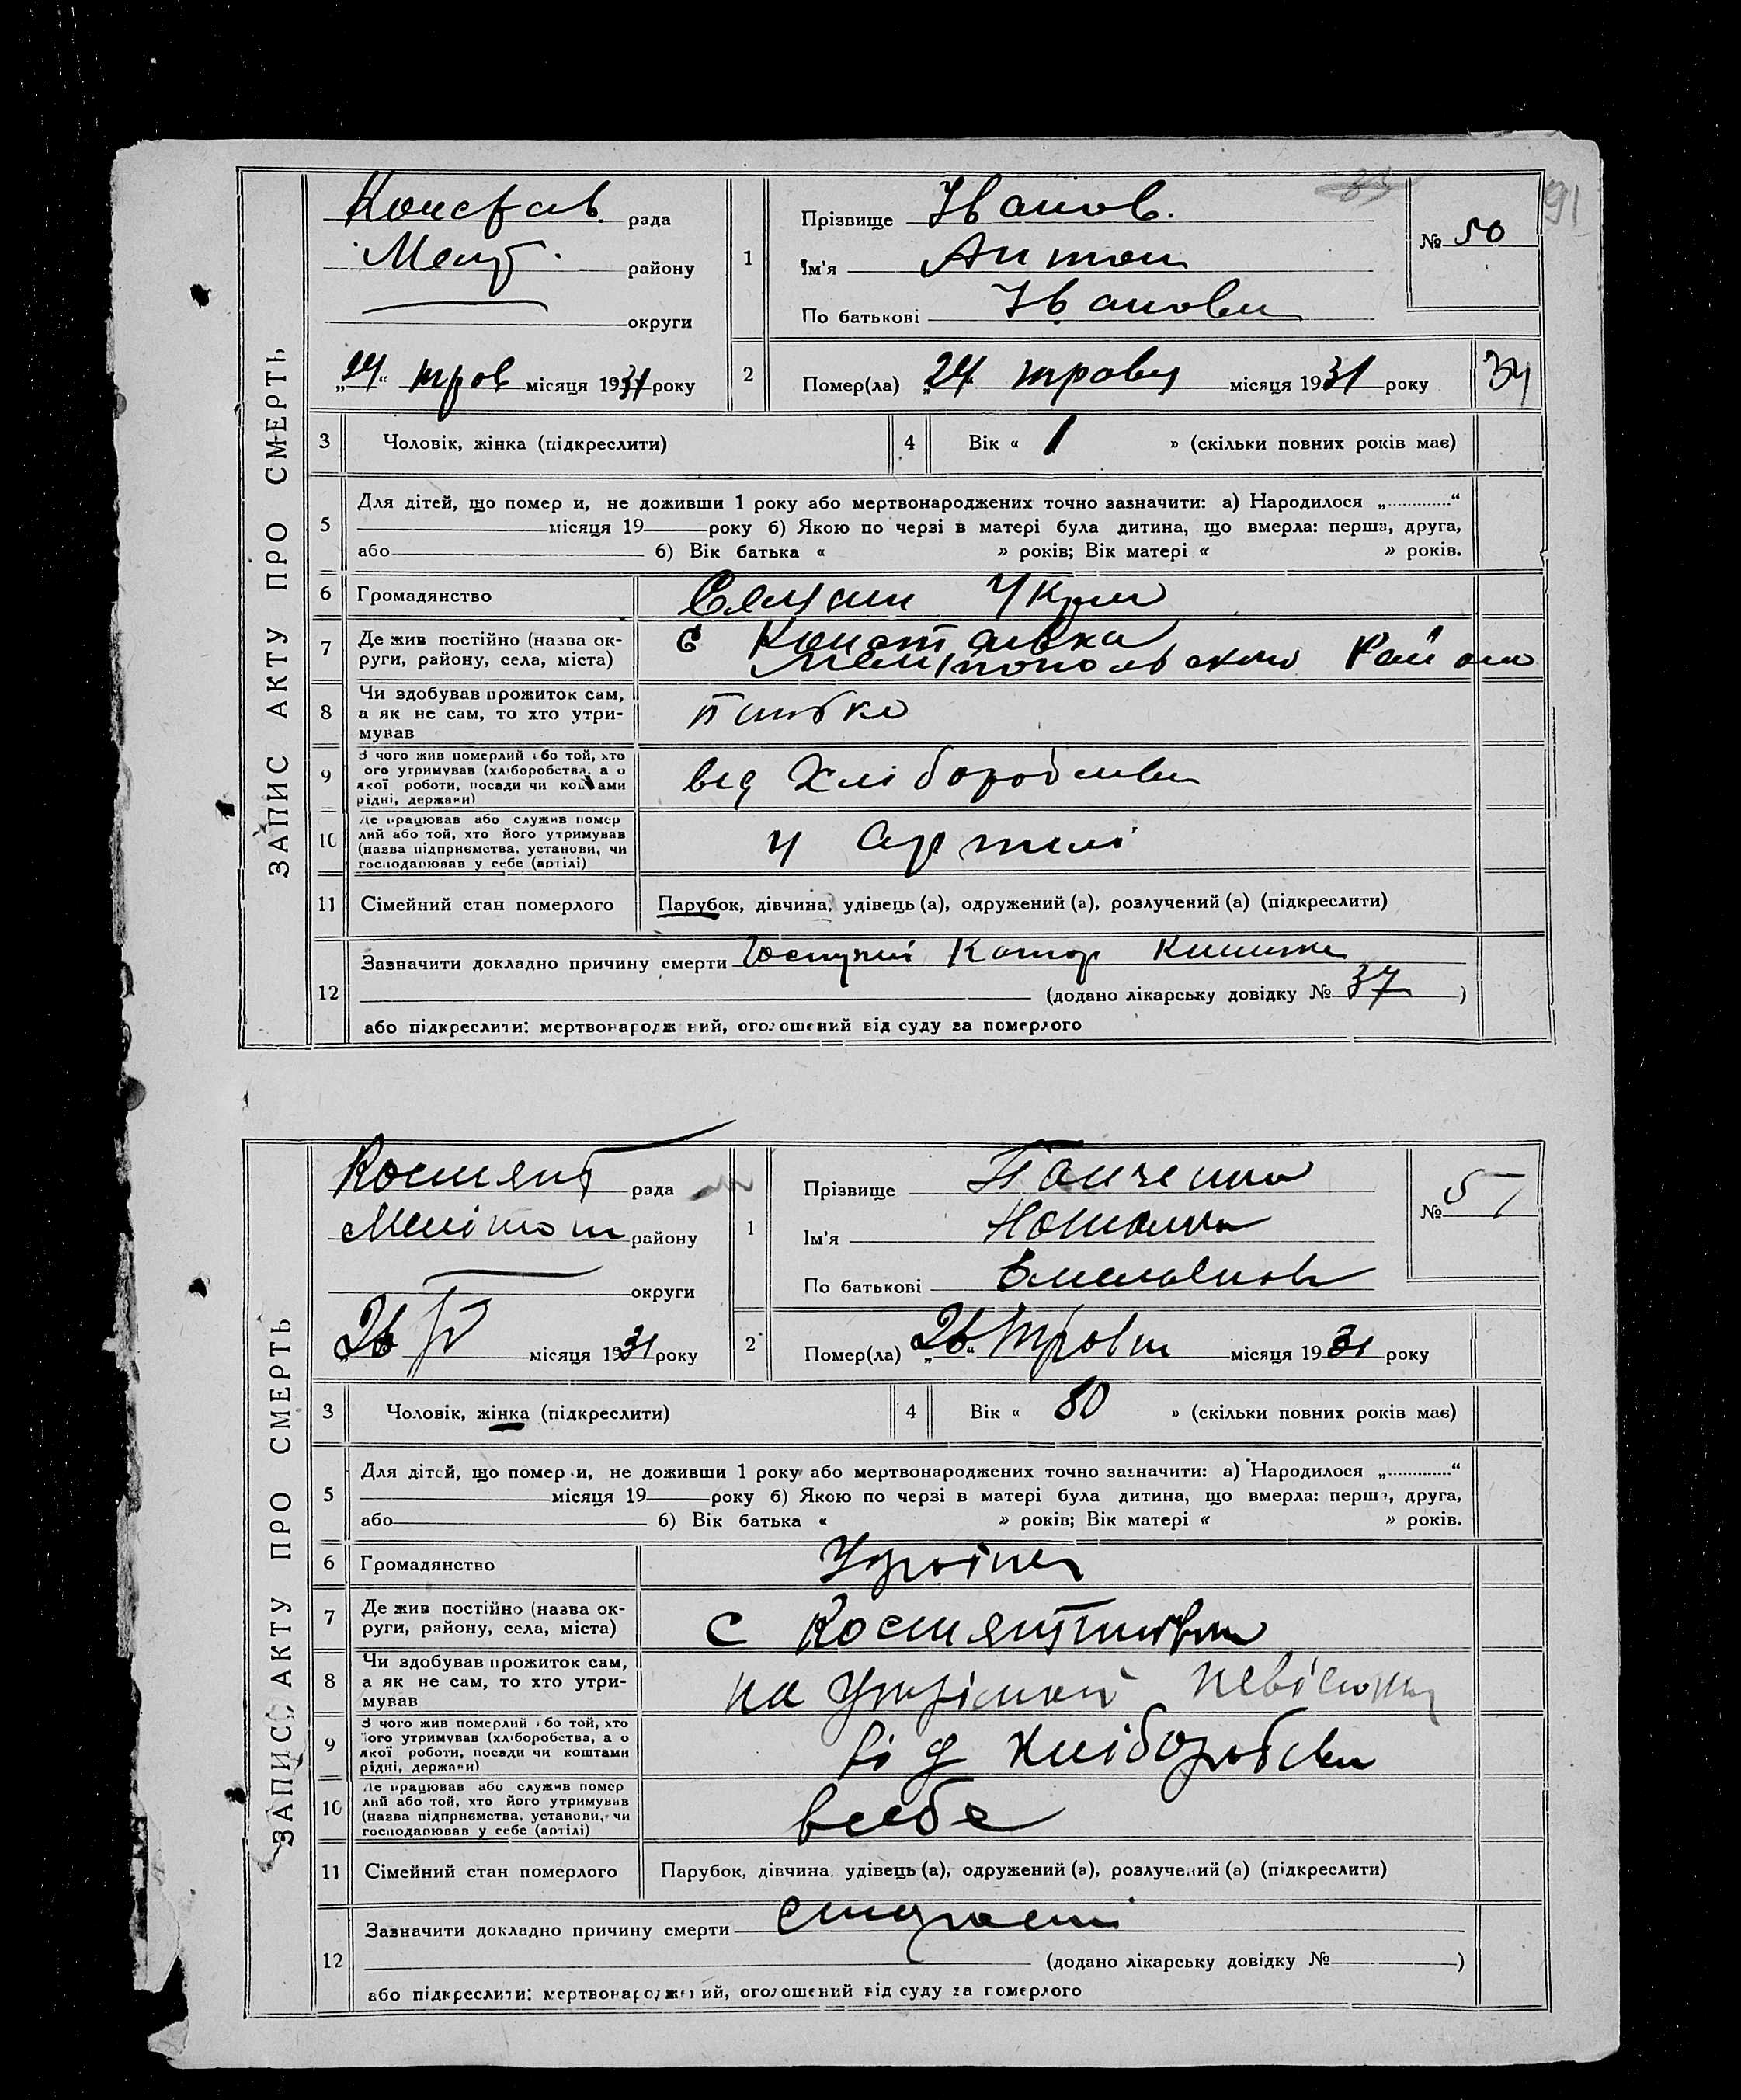 91
ЗАПИС АКТУ ПРО СМЕРТЬ
рада
Меліт. району
округи
„24“ трав місяця 1931 року
1
Прізвище Іванов.
Ім'я Антон
По батькові Іванови
№ 50
2
Помер(ла) „24 траву місяця 1931 року
34
3 Чоловік, жінка (підкреслити)
4 Вік « 1 » (скільки повних років має)
5 Для дітей, що помер и, не доживши 1 року або мертвонароджених точно зазначити: а) Народилося „............“
місяця 19 року б) Якою по черзі в матері була дитина, що вмерла: перша, друга,
або б) Вік батька « » років; Вік матері « » років.
6 Громадянство Украї
7 Де жив постійно (назва ок-
руги, району, села, міста)
с
Мелітопольского Району
8 Чи здобував прожиток сам,
а як не сам, то хто утри-
мував
батько
9 З чого жив померлий або той, хто
ого утримував (хліборобства, а о
якої роботи, посади чи коштами
рідні, держави)
від Хліборобства
10 Де працював або служив помер
лий або той, хто його утримував
(назва підприємства, установи, чи
господарював у себе (артілі)
у Артелі
11 Сімейний стан померлого Парубок, дівчина, удівець (а), одружений (а), розлучений (а) (підкреслити)
12 Зазначити докладно причину смерти Катар Кишок
(додано лікарську довідку № 37 )
або підкреслити: мертвонародж ний, оголошений від суду за померлого
ЗАПИС АКТУ ПРО СМЕРТЬ
Костянт рада
Мелітоп району
округи
„26 V місяця 1931 року
1
Прізвище Панченко
Ім'я Наталка
По батькові Емельянов
№ 51
2
Помер(ла) „26“ Травня місяця 1931 року
3 Чоловік, жінка (підкреслити)
4 Вік « 80 » (скільки повних років має)
5 Для дітей, що помер и, не доживши 1 року або мертвонароджених точно зазначити: а) Народилося „............“
місяця 19 року б) Якою по черзі в матері була дитина, що вмерла: перша, друга,
або б) Вік батька « » років; Вік матері « » років.
6 Громадянство Україн
7 Де жив постійно (назва ок-
руги, району, села, міста)
с Костянтинівка
8 Чи здобував прожиток сам,
а як не сам, то хто утри-
мував
на невістки
9 З чого жив померлий або той, хто
його утримував (хліборобства, а о
якої роботи, посади чи коштами
рідні, держави)
від хліборобства
10 Де працював або служив помер
лий або той, хто його утримував
(назва підприємства, установи, чи
господарював у себе (артілі)
в себе
11 Сімейний стан померлого Парубок, дівчина, удівець (а), одружений (а), розлучений (а) (підкреслити)
12 Зазначити докладно причину смерти старости
(додано лікарську довідку № )
або підкреслити: мертвонароджений, оголошений від суду за померлого